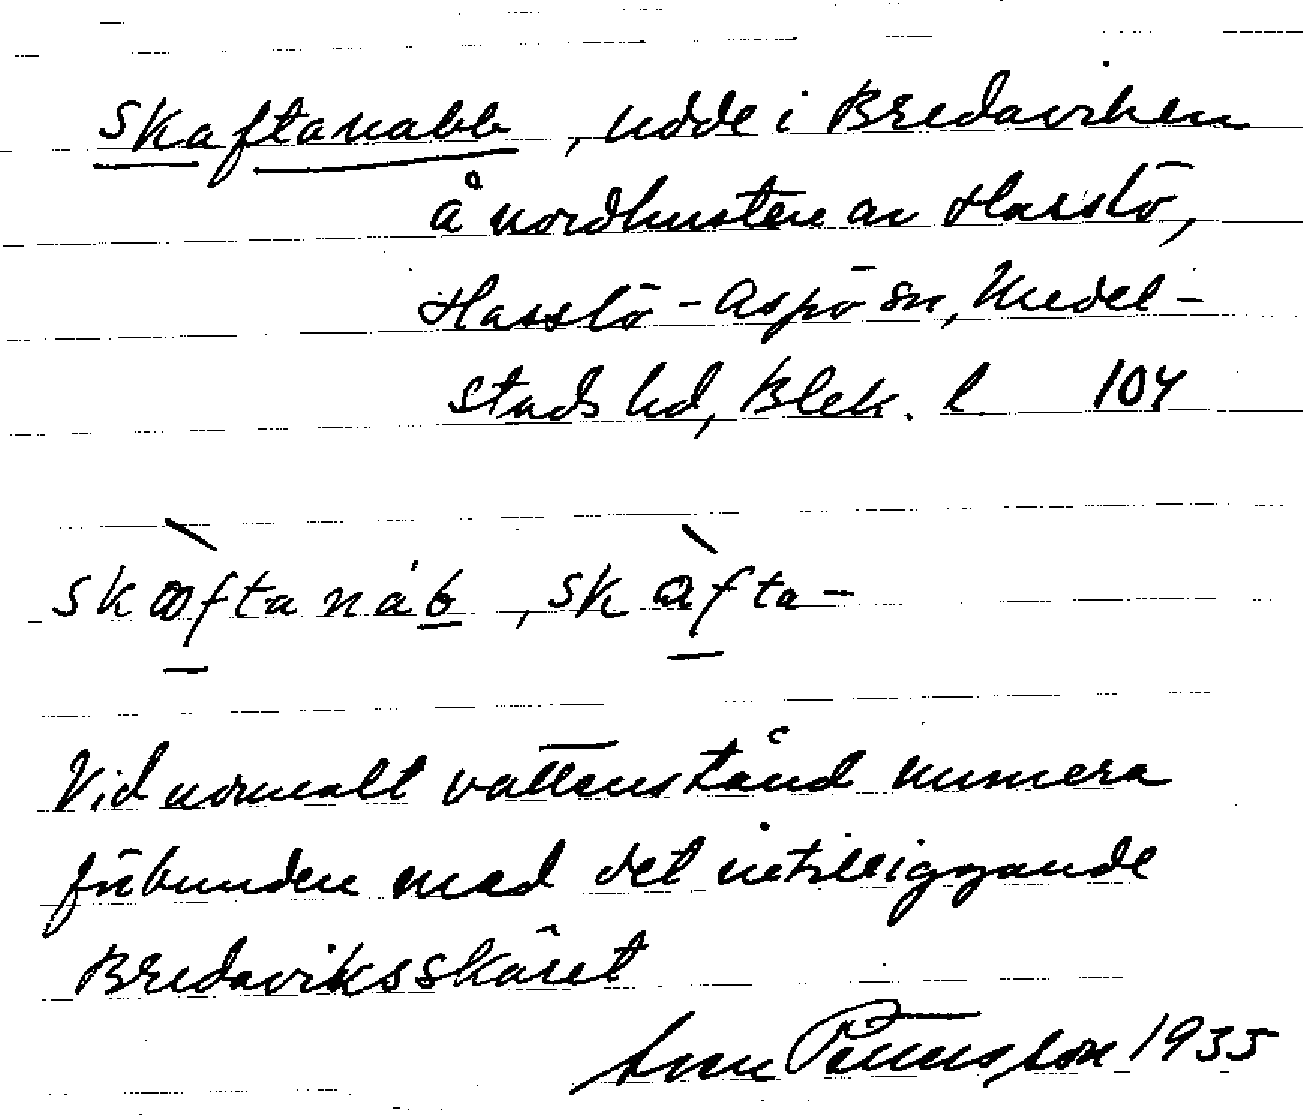 Skaftanabb, udde i Bredaviken
å nordkusten av Hasslö,
Hasslö-Aspö sn, Medel-
stads hd, Blek. l. 104
skꝏftanáb, skafta-
Vid normalt vattenstånd numera
förbunden med det intilliggande
Bredaviksskäret
Pettersson 1935